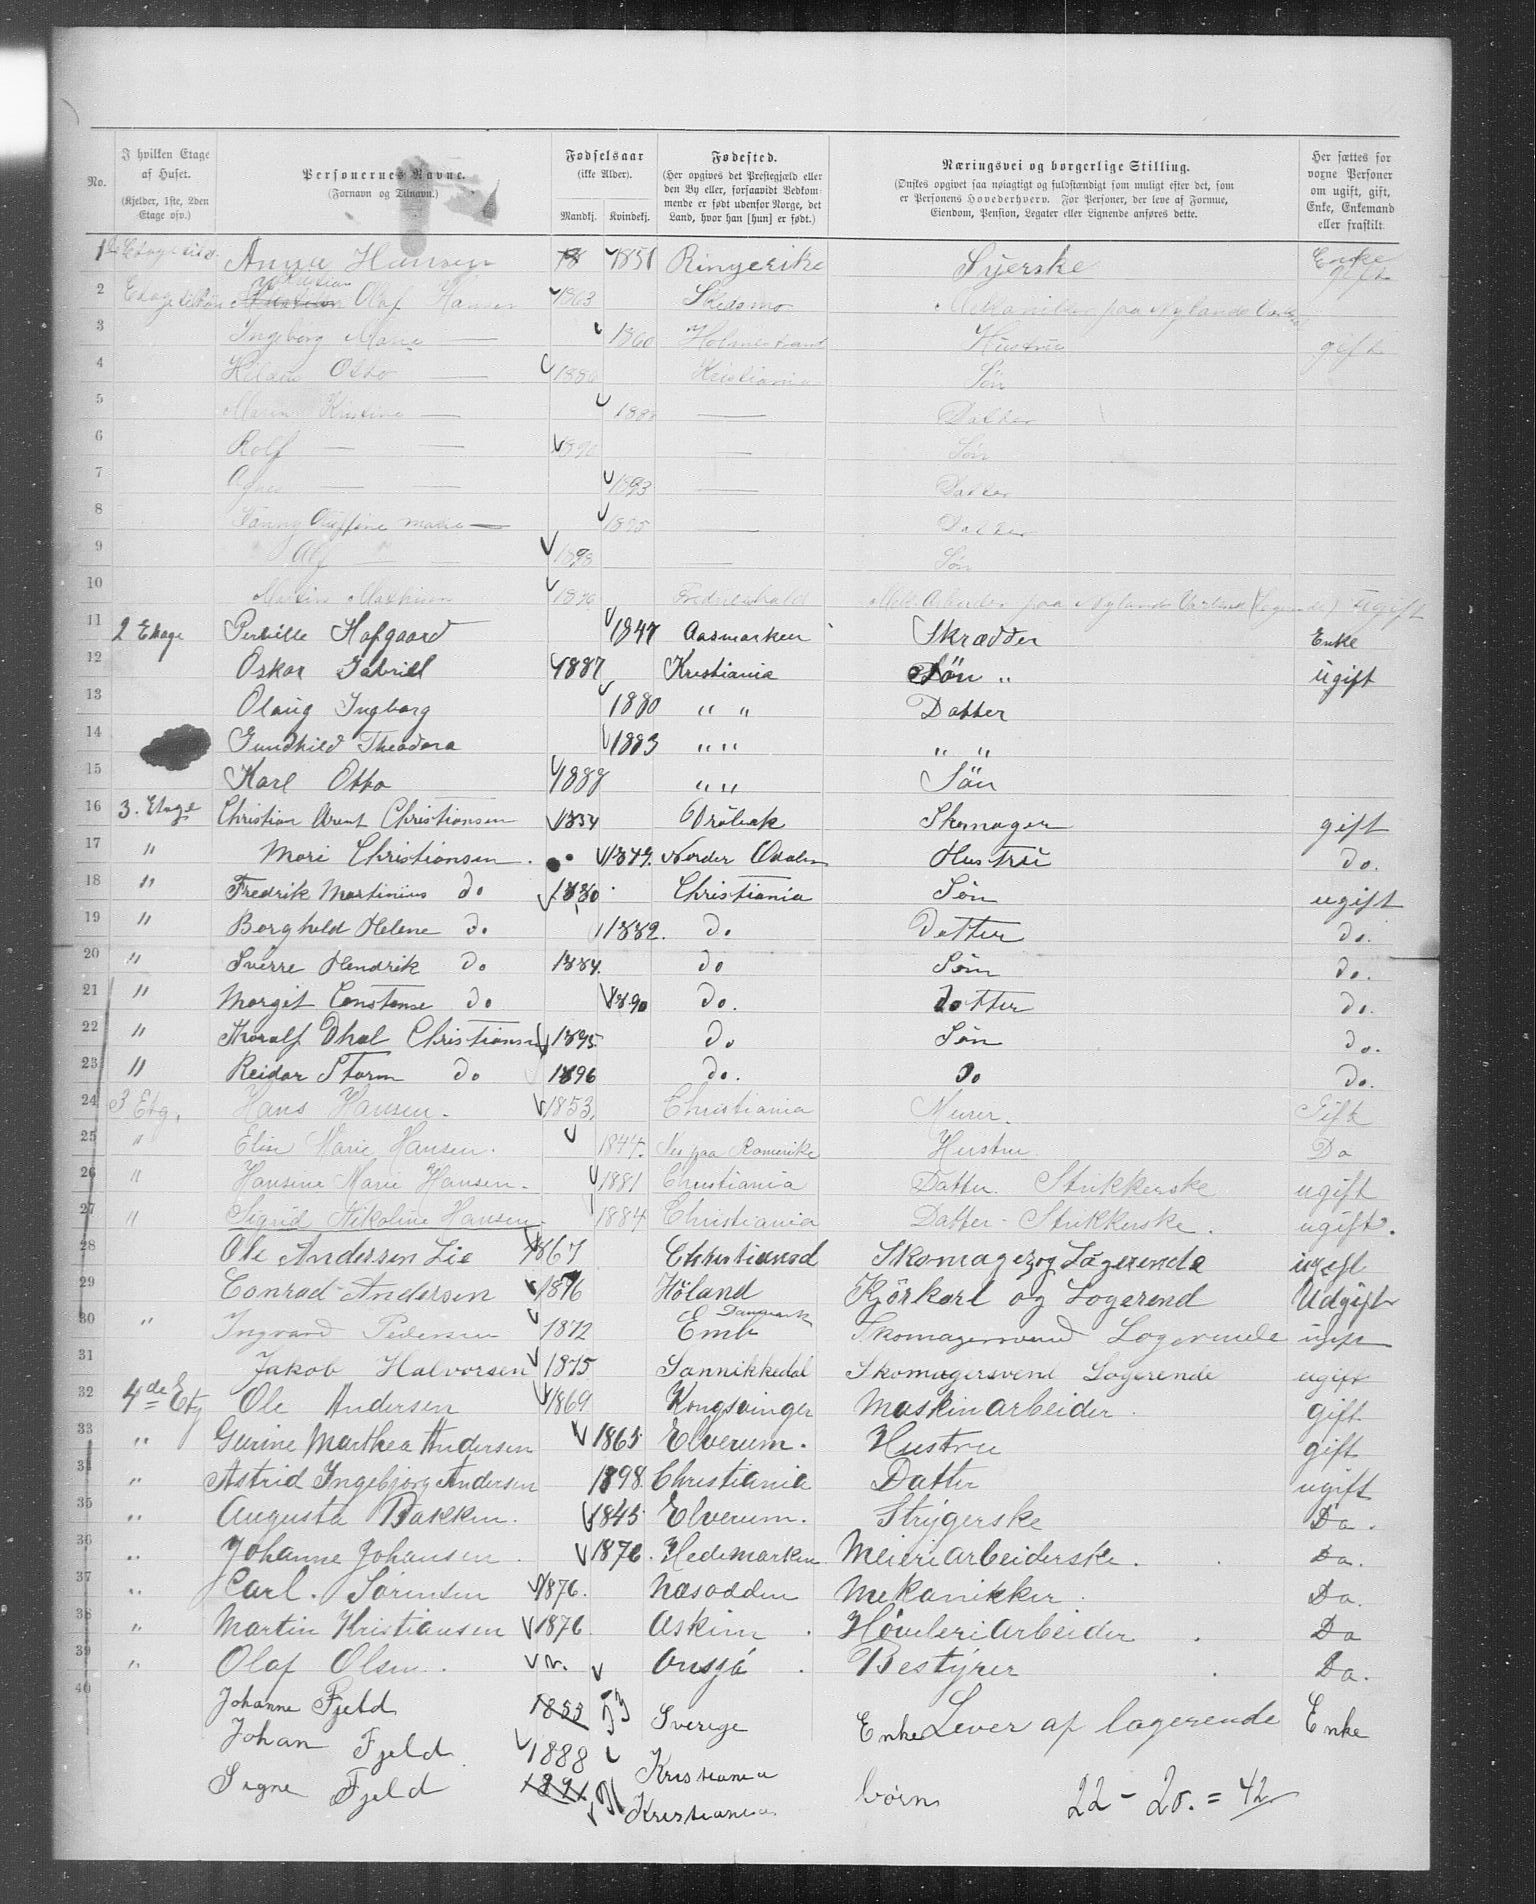 No. I hvilken Etage af Huset. (Kjelder, 1ste, 2den Etage osv.) Personernes Navne. (Fornavn og Tilnavn.) Fødselsaar (ikke Alder). Mandkj. Kvindekj. Fødested. (Her opgives det Prestegjæld eller den By eller, forsaavidt Bedkommende er født udenfor Norge, det Land, hvor han [hun] er født.) Næringsvei og borgerlige Stilling. (Ønskes opgivet saa nøiagtigt og fuldstændigt som muligt efter det, som er Personens Hovederhverv. For Personer, der leve af Formue, Eiendom, Pension, Legater eller Lignende anføres dette. Her sættes for voxne Personer om ugift, gift, Enke, Enkemand eller fraskilt.
1 Anna Hansen 1851 Ringerike Syerske Enke
2 Kristian Olaf Hansen 1863 Skedsmo paa Nylands gift
3 Ingeborg Marie — 1860 Holmestrand Hustru gift
4 Otto — Kristiania Søn
5 Kristine — — Datter
6 Rolf — — — Søn
7 Agnes — — 1893 — Datter
8 Fanny Marie — 1895 — Datter
9 Alf — — — Søn
10 Martin Fredrikshald paa Nylands (Logerende) Ugift
11 2 Etage Pernille Hofgaard 1847 Aasmarken Skrædder Enke
12 Oskar Gabriel 1887 Kristiania Søn " ugift
13 Olaug Ingborg 1880 " " Datter
14 Gundhild Theodora 1883 " " " "
15 Karl Otto 1888 " " Søn
16 3. Etage Christian Arent Christiansen 1854 Drøbak Skomager gift
17 " Mari Christiansen 1849. Norder Odalen Hustru do.
18 " Fredrik Martinius do 1880 Christiania Søn ugift
19 " Borghild Helene do 1882. do Datter do.
20 " Sverre Hendrik do 1884. do Søn do.
21 " Margit Constanse do 1890 do. datter do.
22 " Thoralf Dhal Christiansen 1895 do Søn do.
23 " Reidar Storm do 1896 do. do do.
24 3 Etg. Hans Hansen. 1853. Christiania Murer. Gift
25 " Elise Marie Hansen. 1844. Nes paa Romerike Hustru Do
26 " Hansine Marie Hansen. 1881 Christiania Datter. Strikkerske ugift
27 " Sigrid Nikoline Hansen. 1884 Christiania Datter - Strikkerske. ugift.
28 Ole Andersen Lie 1867 Christiansd Skomager og Lagerende ugift
29 Conrad Andersen 1876 Høland Kjörkarl og Logerend Udgift
30 " Ingvard Pedersen 1872 Danmark Skomagersvend Logerende ugift
31 Jakob Halvorsen 1875 Sannikkedal Skomagersvend Logerende ugift
32 4de Etg Ole Andersen 1869 Kongsvinger Maskinarbeider gift
33 " Gurine Marthea Andersen 1865 Elverum. Hustru gift
34 " Astrid Ingebjørg Andersen 1898 Christiania Datter ugift
35 " Augusta Bakken. 1845 Elverum. Strygerske Do.
36 " Johanne Johansen. 1876. Hedemarken Meieriarbeiderske. Do.
37 " Carl. Sørensen 1876. Næsodden Mekanikker Do.
38 " Martin Kristiansen 1876 Askim Høvleriarbeider Do
39 " Olaf Olsen. Onsjø Bestyrer Do.
40 Johanne Fjeld 1853 53 Sverige Enke Lever af logerende Enke
Johan Fjeld 1888 Kristiania
Signe Fjeld 1891 91 Kristiania børn 22 - 20. = 42